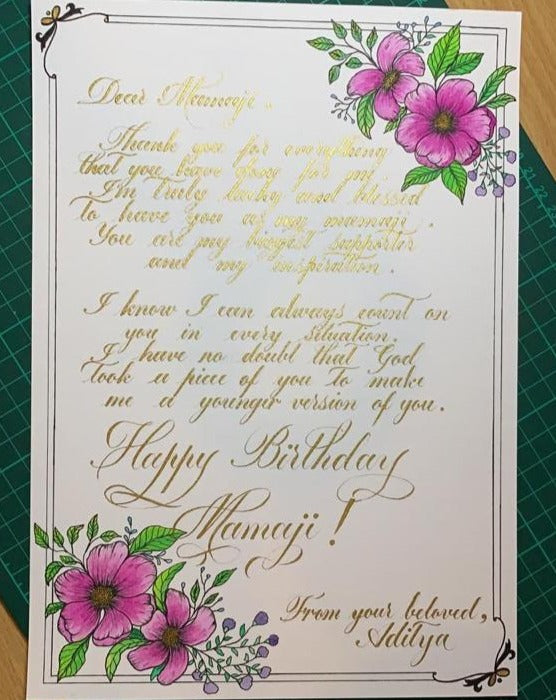 Dear Mamaji.
Thank you for everything
that you have done for me.
I'm truly lucky and blessed
to have you as my mamaji.
You are my biggest supporter
and my inspiration.
I know I can always count on
you in every situation.
I have no doubt that God
took a piece of you to make
me a younger version of you.
Happy Birthday
Mamaji!
From your beloved,
Aditya